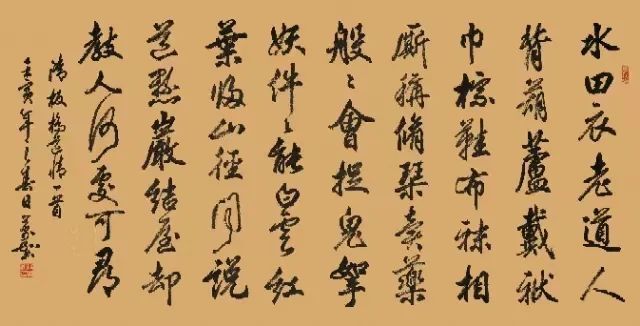 水田衣老道人
背葫蘆戴袱
巾棕鞋布袜相
厮稱脩琴賣藥
般〻會捉鬼拏
妖件〻能白雲紅
葉歸山徑闻說
道懸巖結屋却
教人何處可尋
清板橋道情一首
壬寅年之春日